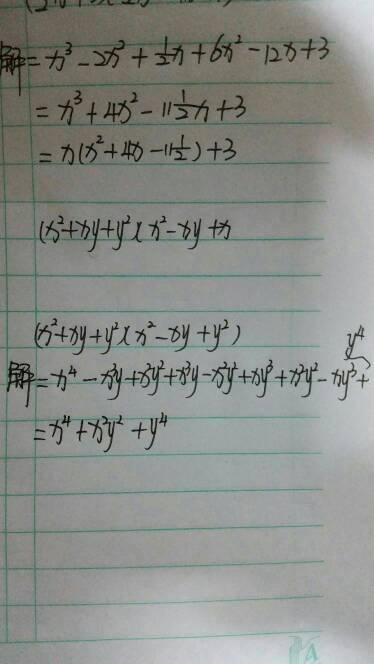 解=x³-2x²+½x+6x²-12x+3
=x³+4x²-11½x+3
=x(x²+4x-11½)+3
(x²+xy+y²)(x²-xy+x
(x²+xy+y²)(x²-xy+y²)
解=x⁴-x³y+x²y²+x³y-x²y²+xy³+x²y²-xy³+y⁴
=x⁴+x²y²+y⁴